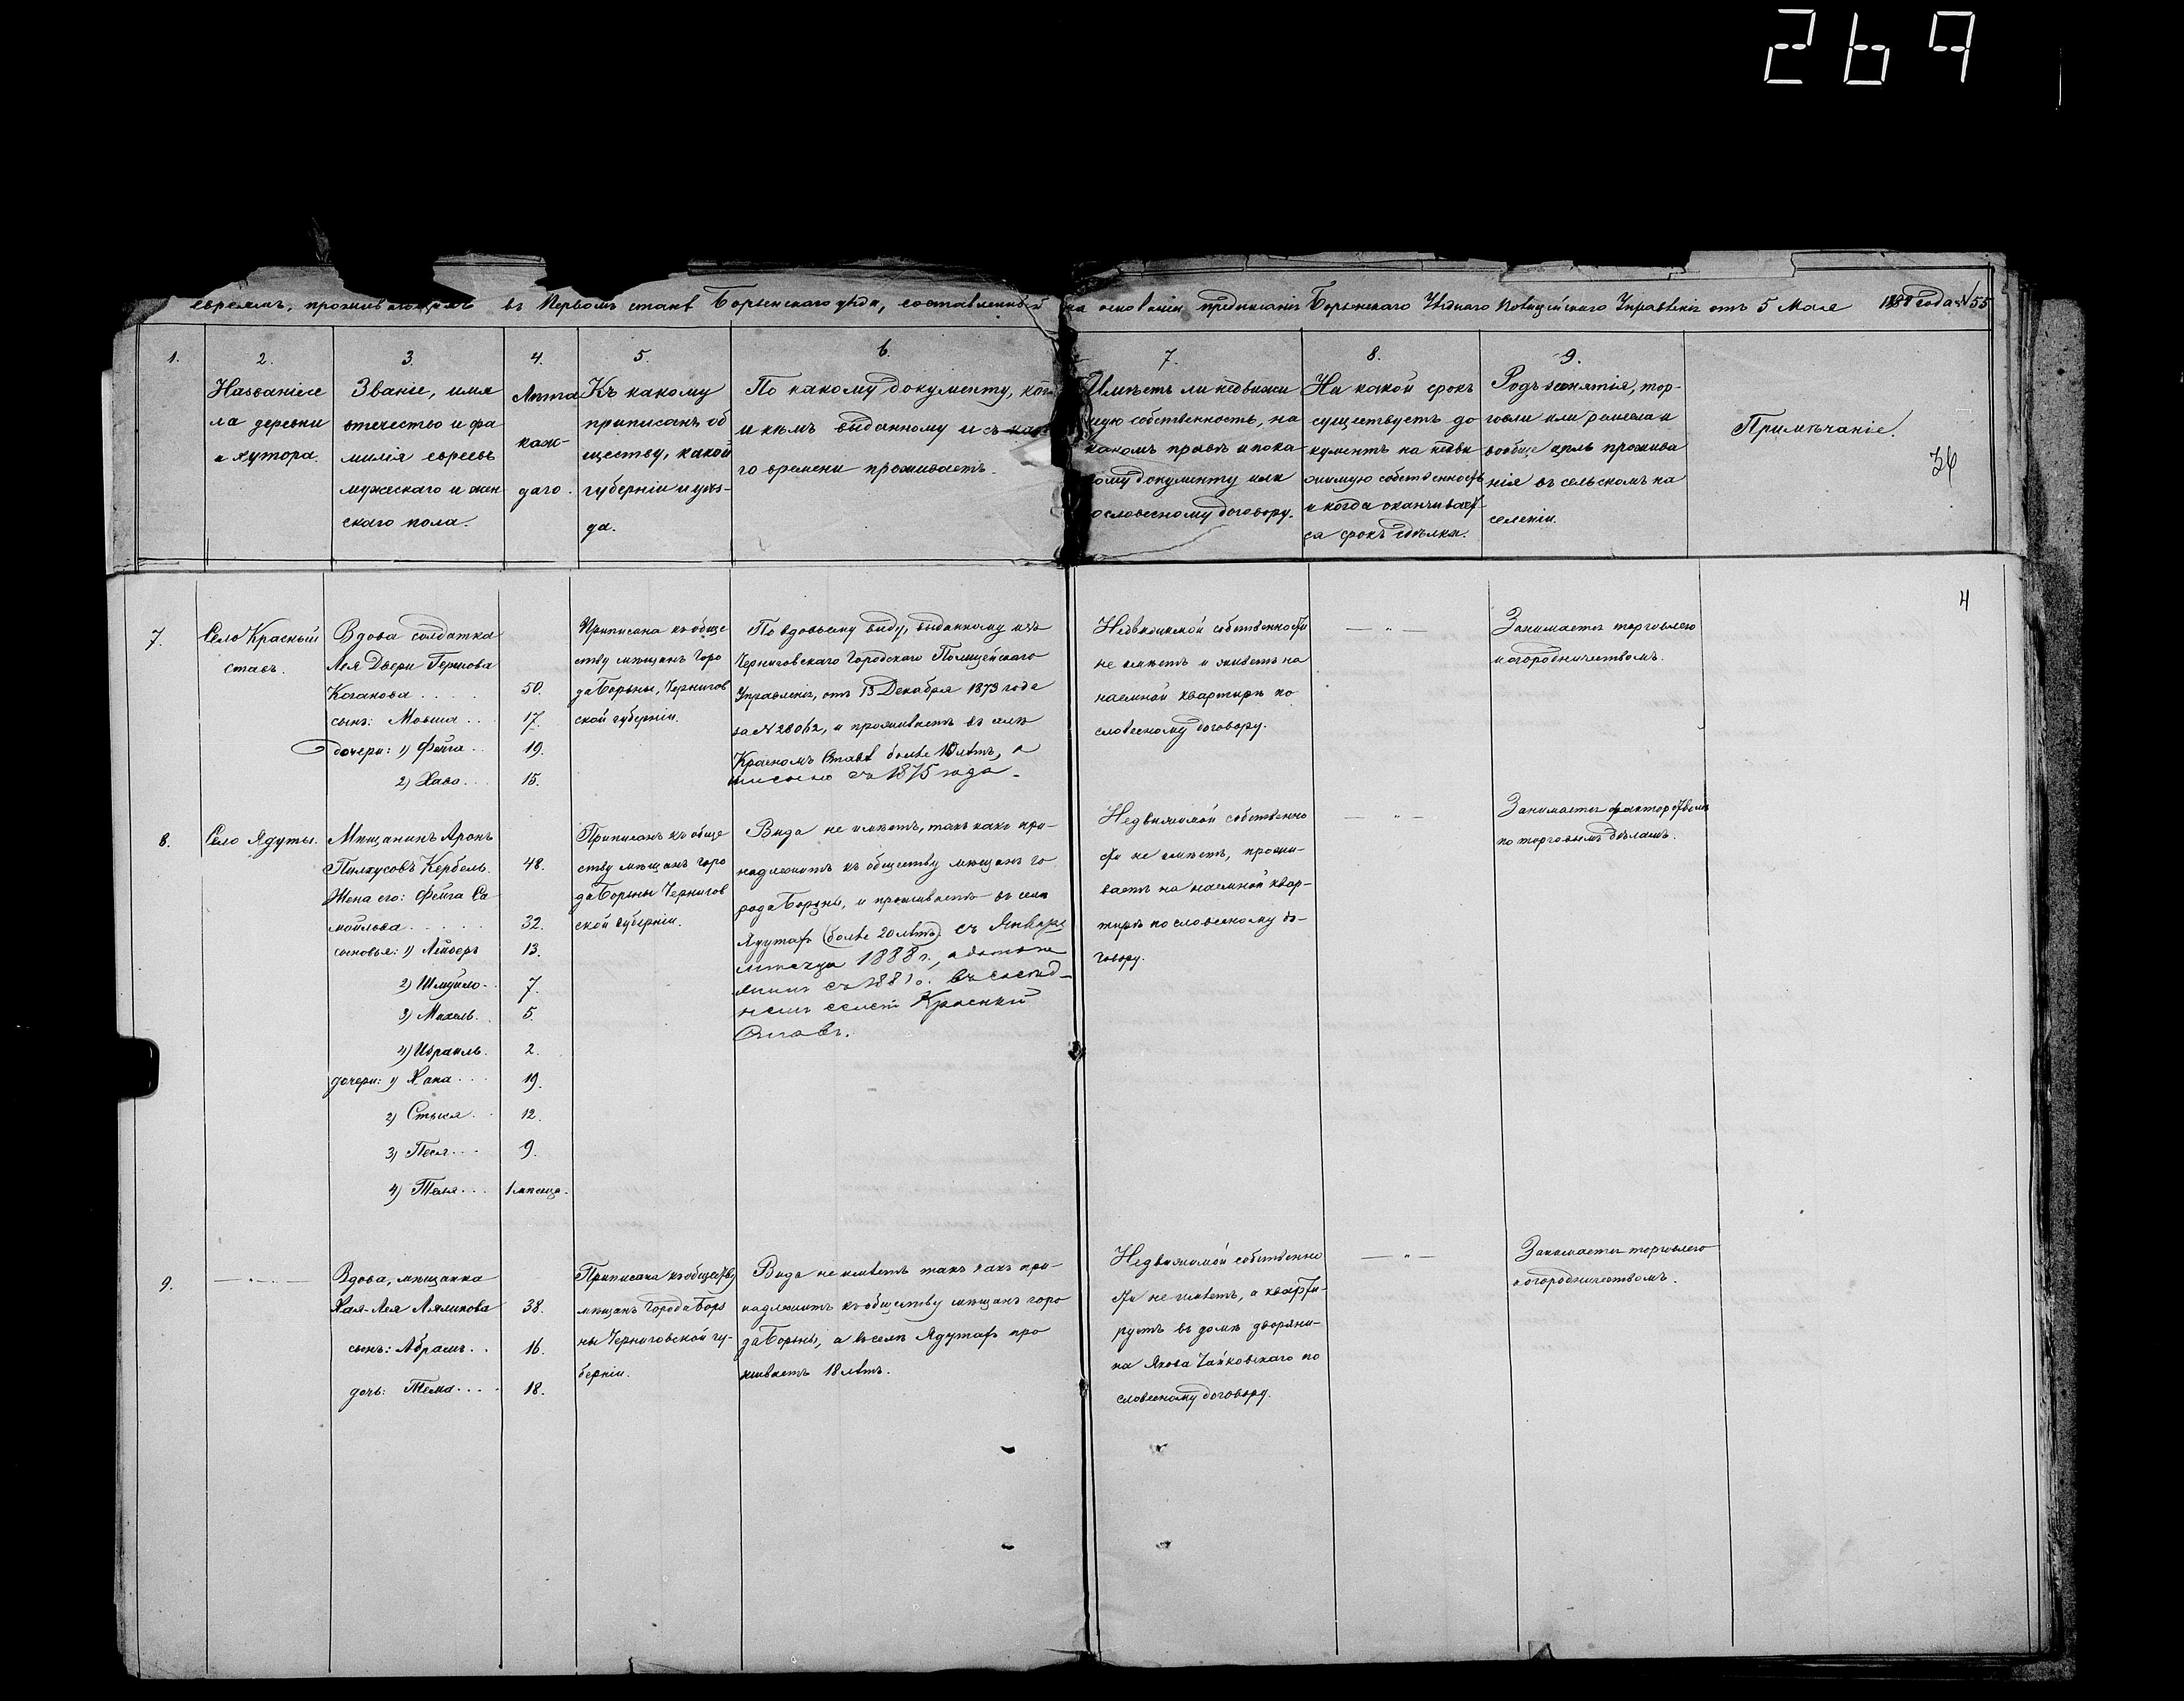 269
евреямъ, проживающимъ въ Первомъ станѣ Борзенскаго уѣзда, составленный на основаніи предписанія Борзенскаго Уѣзднаго Полицейскаго Управленія отъ 5 Мая 188 года № 55
1.
2.
Названіе се
ла деревни
и хутора.
3.
Званіе, имя
отечество и фа
милія евреевъ
мужескаго и жен
скаго пола.
4.
Лѣта
каж-
даго.
5.
Къ какому
приписанъ об
ществу, какой
губерніи и уѣз-
да.
6.
По какому документу, когда
и кѣмъ выданному и съ как
го времени проживаетъ.
7.
Имѣетъ ли недвижи
мую собственность, на
какомъ правѣ и по ка
кому документу или
словесному договору.
8.
На какой срокъ
существуетъ до
кументъ на недви
жимую собственность
и когда оканчивает
ся срокъ сдѣлки.
9.
Родъ занятія, тор-
говли или ремесла и
вообще цѣль прожива
нія въ сельскомъ на
селеніи.
Примѣчаніе.
36
4
7.
Село Красный
ставъ.
Вдова солдатка
Лея Двери Гершова
Коганова . . . . 50.
сынъ: Мовша . . 17.
дочери: 1) Фейга . . 19.
2) Хава . . . 15.
Приписана къ обще
ству мѣщанъ горо
да Борзны, Чернигов
ской губерніи.
По вдовьему виду, выданному изъ
Черниговскаго Городскаго Полицейскаго
Управленія, отъ 13 Декабря 1873 года
за № 28062, и проживаетъ въ селѣ
Красномъ Ставѣ болѣе 10 лѣтъ, а
именно съ 1875 года.
Недвижимой собственности
не имѣетъ и живетъ на
наемной квартирѣ по
словесному договору.
— „ —
Занимается торговлею
и огородничествомъ.
8.
Село Ядуты.
Мѣщанинъ Аронъ
Пинхусовъ Кербель. 48.
Жена его: Фейга Са
мойлова . . . . . . 32.
сыновья: 1) Лейзеръ 13.
2) Шмуйло . . 7.
3) Михель. 5.
4) Израиль. 2.
дочери: 1) Хана . . . 19.
2) Стыся . . 12.
3) Песя . . . 9.
4) Тыля . . . 1 мѣсяца.
Приписанъ къ обще
ству мѣщанъ горо
да Борзны Чернигов
ской губерніи.
Вида не имѣетъ, такъ какъ при-
надлежитъ къ обществу мѣщанъ го
рода Борзны, и проживаетъ въ селѣ
Ядутахъ (болѣе 20 лѣтъ) съ Января
мѣсяца 1888 г.,
съ 1881 г. въ сосѣд-
немъ селеніи Красный
Ставъ.
Недвижимой собственно
сти не имѣетъ, прожи-
ваетъ на наемной квар-
тирѣ по словесному до-
говору.
— „ —
Занимается факторствомъ
по торговымъ дѣламъ.
9.
— „ —
Вдова, мѣщанка
Хая-Лея Ляликова 38.
сынъ: Абрамъ . . 16.
дочь: Тема . . . . 18.
Приписана къ обществу
мѣщанъ города Борз
ны Черниговской гу-
берніи.
Вида не имѣетъ такъ какъ при-
надлежитъ къ обществу мѣщанъ горо
да Борзны, а въ селѣ Ядутахъ про
живаетъ 18 лѣтъ.
Недвижимой собственно
сти не имѣетъ, а кварти-
руетъ въ домѣ дворяни-
на Якова Чайковскаго по
словесному договору.
— „ —
Занимается торговлею
и огородничествомъ.